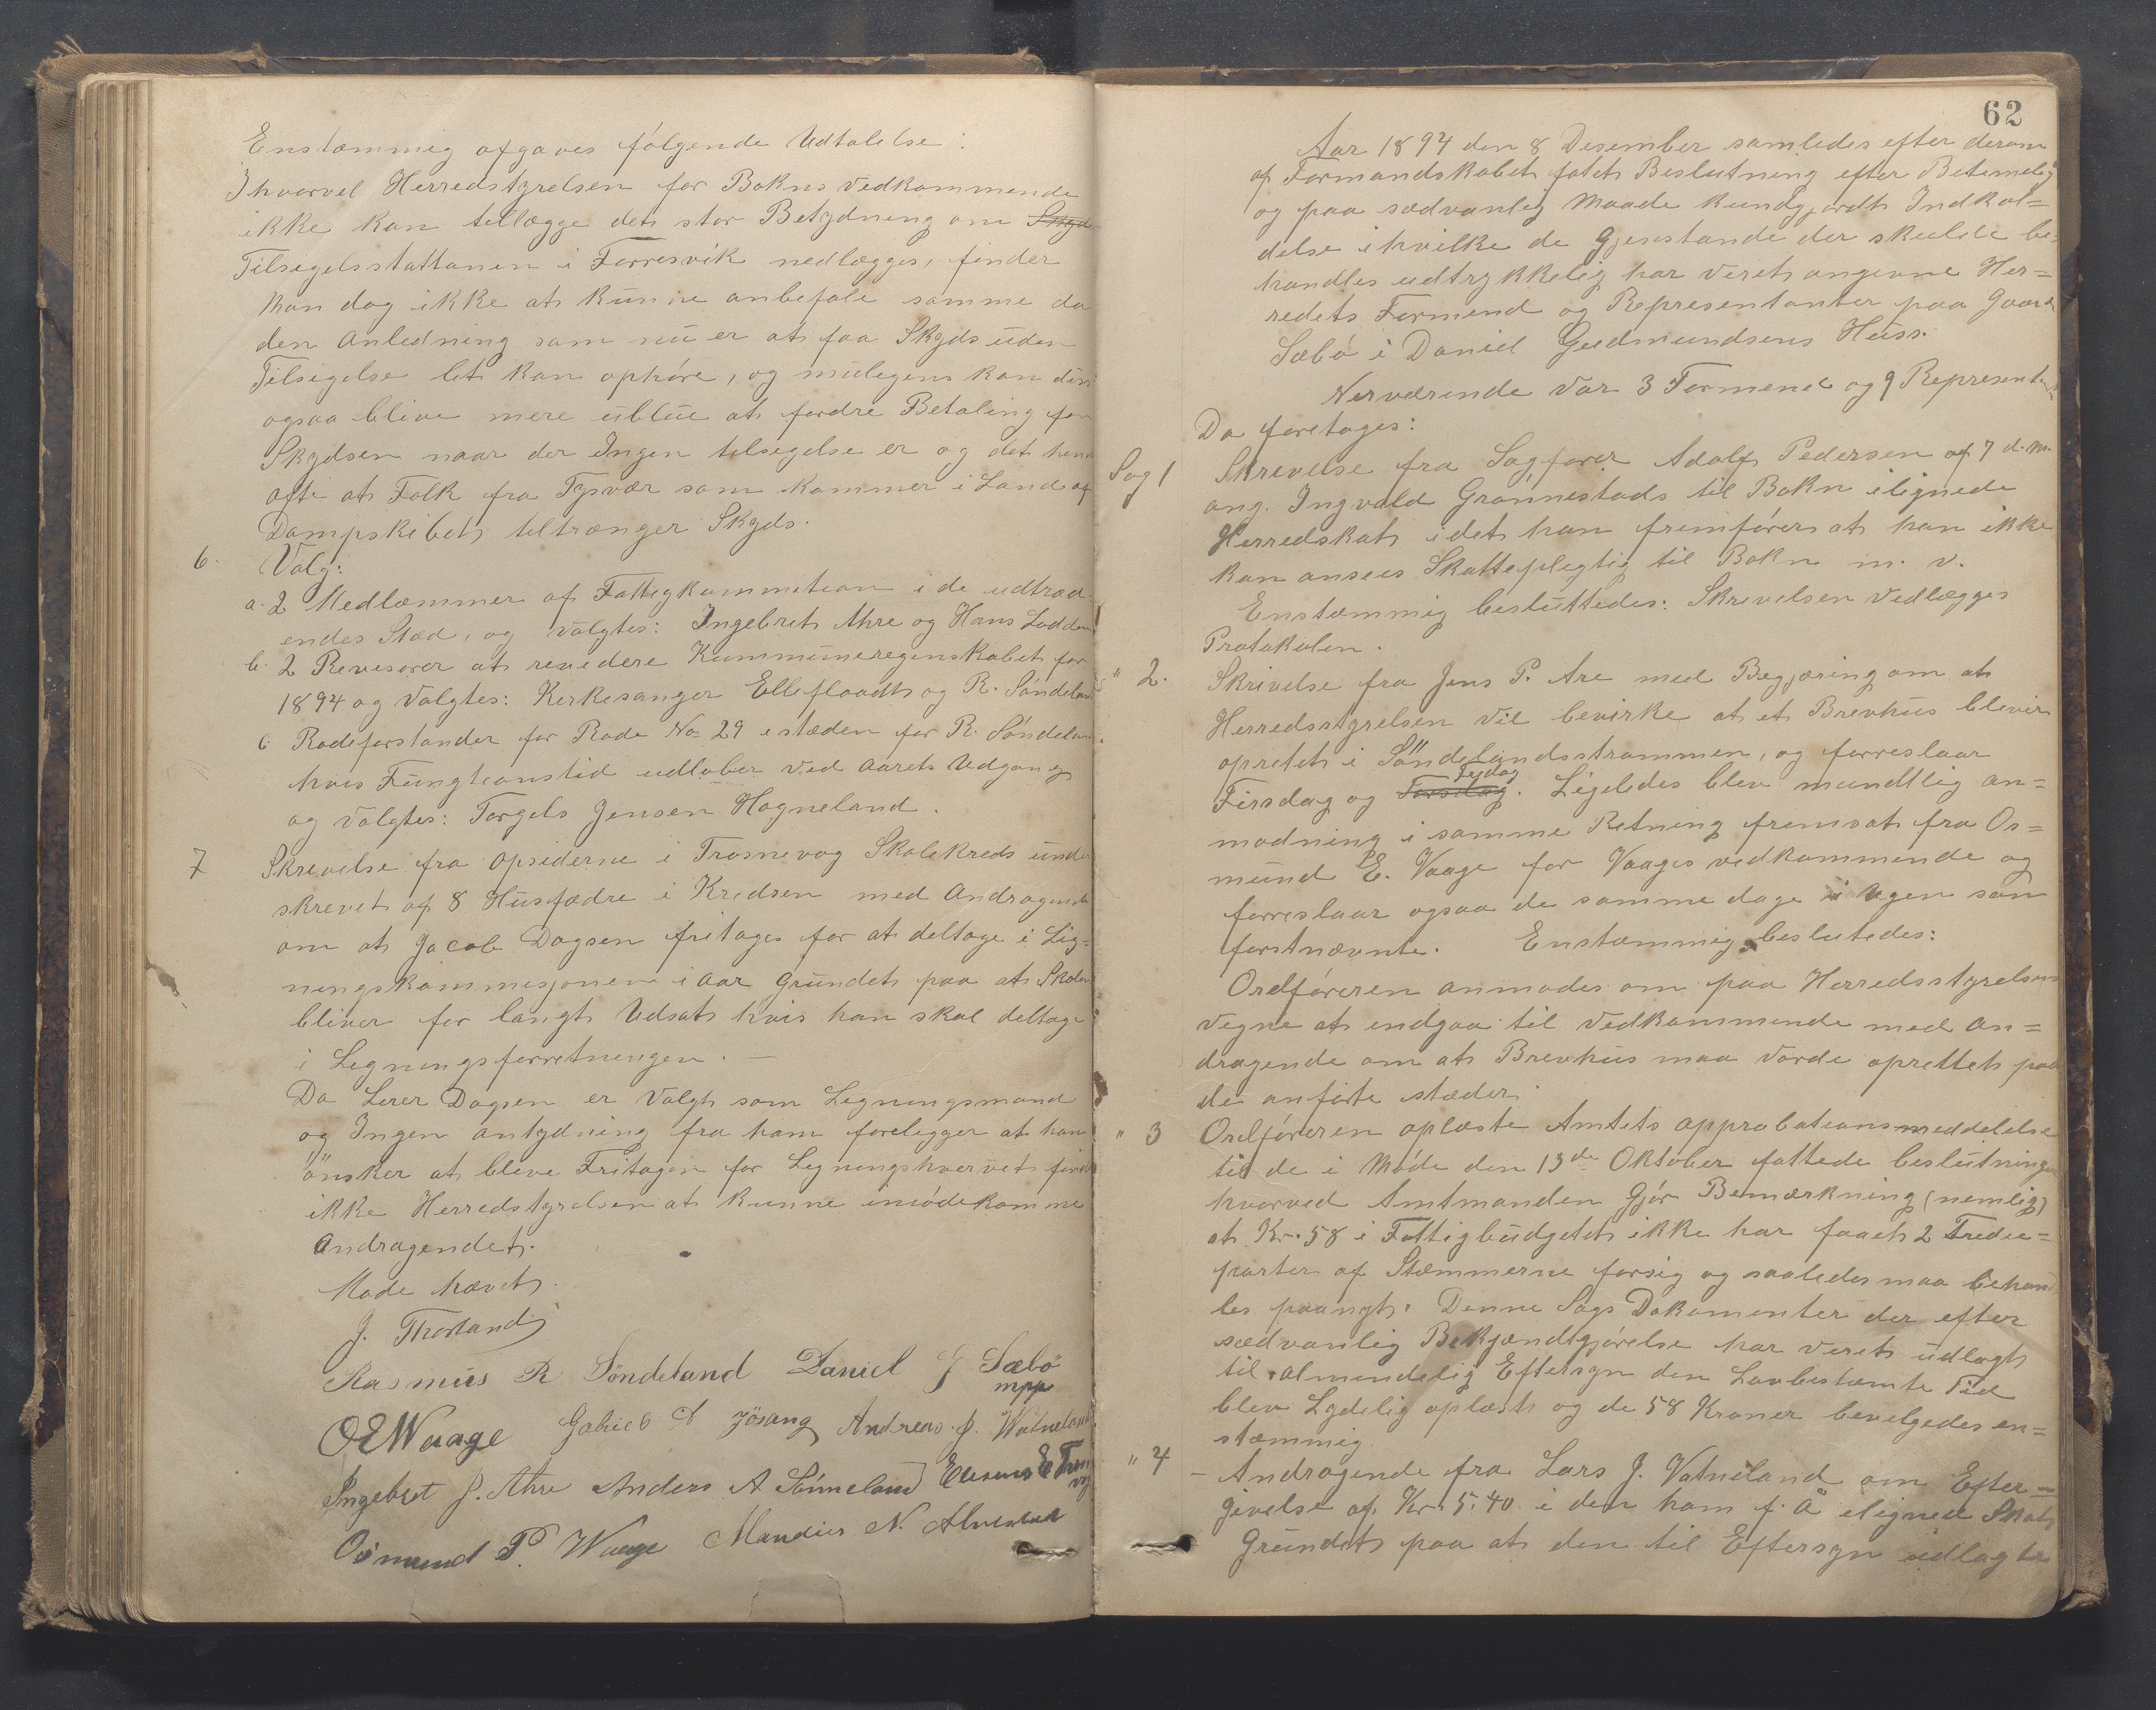 Enstæmmig afgaves følgende Udtalelse:
Ihvorvel Herredstyrelsen for Bokns Vedkommende
ikke kan tillægge det stor Betydning om Skyd-
Tilsigelsstattonen i Førresvik nedlægges, finder
man dog ikke at kunne anbefale samme da
den Anledning som nu er at faa Skyds uden
Tilsigelse let kan ophøre, og muligens kan det
ogsaa blive mere ublue at fordre Betaling for
Skydsen naar der Ingen tilsigelse er og det hend
ofte at Folk fra Tysvær som kommer i Land af
Dampskibet tiltrænger Skyds.
6. Valg:
a. 2 Medlæmmer af Fattigkummition i de udtræd-
endes Stæd, og valgtes: Ingebret Ahre og Hans Lodden
b. 2 Revisorer at revidere Kummuneregenskabet for
1894 og Valgtes: Kirkesanger Elleflaadt og R. Søndeland
c Rodeforstander for Rode No 29 i stæden for R. Søndelan
hvis Fungtionstid udløber ved Aarets Udgang
og valgtes: Torgels Jensen Hogneland.
7 Skrivelse fra Opsiderne i Trosnevog Skolekreds unde
skrevet af 8 Husfædre i Kredsen med Andragende
om at Jacob Dagsen fritages for at deltage i Lig-
ningskommisjonen i Aar Grundet paa at Skolen
bliver for langt Udsat hvis han skal deltage
i Legningsforretningen. —
Da Lærer Dagsen er Valgt som Legningsmand
og Ingen antydning fra ham foreligger at han
ønsker at blive Fritagen for Legningshvervet find
ikke Herredstyrelsen at kunne imødekomme
Andragendet.
Møde hævet.
J. Thorland
Rasmus R Søndeland Daniel G Sæbø
mpp
OEWaage Gabriel D Jøsang Andreas J. Watneland
Ingebret J. Ahre Anders A Sønneland Elesevs E Trosn
vog
Osmund P. Waage Mandius N. Alvestad
62
Aar 1894 den 8 Desember samledes efter derom
af Formandskabet fatet Beslutning efter Betimelig
og paa sædvanlig Maade kundgjordt Indkal=
delse i hvilke de Gjenstande der skulde be=
handles udtrykkelig har veret angivne Her=
redets Formend og Representanter paa Gaard
Sæbø i Daniel Gudmundsens Huss.
Nerværende var 3 Formend og 9 Represent
Da foretages:
Sag 1 Skrevelse fra Sagfører Adolf Pedersen af 7 d. M.
ang. Ingvald Grønnestads til Bokn ilignede
Herredskat idet han fremfører at han ikke
kan ansees Skatteplegtig til Bokn m. v.
Enstæmmig besluttedes: Skrevelsen Vedlægges
Protokolen.
" 2. Skrivelse fra Jens P. Are med Begjæring om at
Herredsstyrelsen vil bevirke at et Brevhus blevir
opretet i Søndelandsstrømmen, og forreslaar
Tirsdag og Torsdag Fredag. Ligeledes blev mundtlig an=
modning i samme Retning fremsat fra Os=
mund E. Vaage for Vaages vedkommende og
forreslaar ogsaa de samme dage i Ugen som
førstnævnte. Enstæmmig beslutedes:
Ordføreren anmodes om paa Herredsstyrelsens
Vegne at indgaa til Vedkommende med An=
dragende om at Brevhus maa vorde oprettet paa
de anførte stæder.
" 3 Ordføreren oplæste Amtets approbationsmeddelelse
til de i Møde den 13de Oktober fattede beslutninger
hvorved Amtmanden Gjør Bemærkning (nemlig)
at Kr. 58 i Fattigbudgetet ikke har faaet 2 Tredie=
parter af Stæmmerne forsig og saaledes maa behand
les paanyt. Denne Sags Dokomenter der efter
sædvanlig Bekjændtgjørelse har veret udlagt
til almendelig Eftersyn den Lovbestæmte Tid
blev Lydelig oplæst og de 58 Kroner bevilgedes en=
stæmmig.
" 4 – Andragende fra Lars J. Vatneland om Efter=
givelse af Kr. 5.40 i den ham f. A ilignede Skat
Grundet paa at den til Eftersyn udlagte